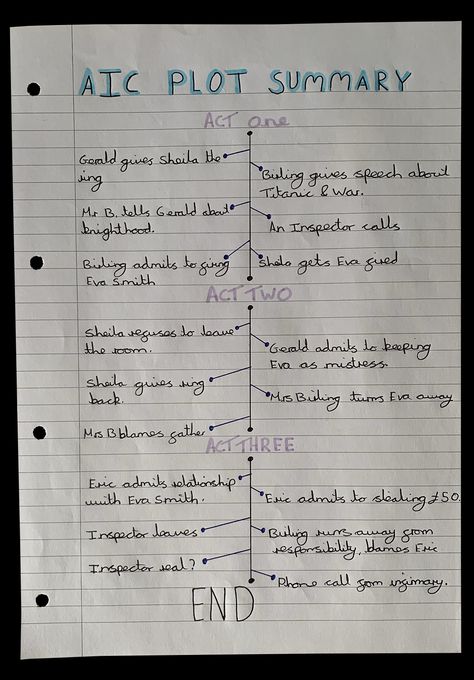 AIC PLOT SUMMARY
ACT one
Gerald gives Sheila the
ring
Birling gives speech about
Titanic & War.
Mr B. tells Gerald about
knighthood.
An Inspector calls
Birling admits to firing
Eva Smith
Sheila gets Eva fired
ACT TWO
Sheila refuses to leave
the room.
Gerald admits to keeping
Eva as mistress.
Sheila gives ring
back.
Mrs Birling turns Eva away
Mrs B blames father
ACT THREE
Eric admits relationship
with Eva Smith.
Eric admits to stealing £50.
Inspector leaves
Birling runs away from
responsibility, blames Eric
Inspector real?
Phone call from infirmary.
END